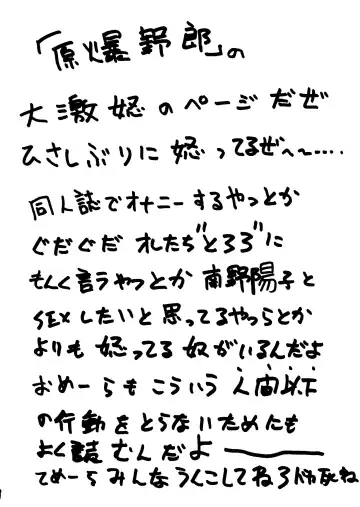 「原爆野郎」の
大激怒のページだぜ
ひさしぶりに怒ってるぜ〜〜‥‥
同人誌でオナニーするやつとか
ぐだぐだオレたち"とろろ"に
もんく言うやつとか南野陽子と
SEXしたいと思ってるやつらとか
よりも怒ってる奴がいるんだよ
おめーらもこういう人間以下
の行動をとらないためにも
よく読むんだよ
てめーらみんなうんこしてねろバカ死ね